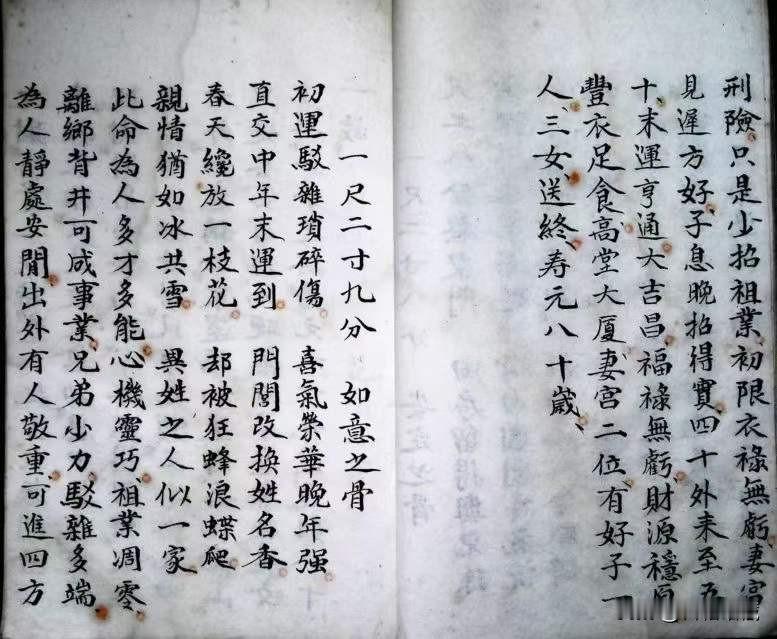 刑險只是少招祖業初限衣祿無虧妻宮
見遲方好子息晚招得實四十外来至五
十、末運亨通大吉昌福祿無虧財源穩厚
豐衣足食高堂大厦妻宮二位有好子一
人、三女送終、寿元八十歲、
一尺二寸九分 如意之骨
初運駁雜瑣碎傷 喜氣榮華晚年强
直交中年末運到 門閭改換姓名香
春天纔放一枝花 却被狂蜂浪蝶爬
親情猶如冰共雪 異姓之人似一家
此命為人多才多能心機靈巧祖業凋零
離鄉背井可成事業兄弟少力駁雜多端
為人靜處安閒出外有人敬重可進四方